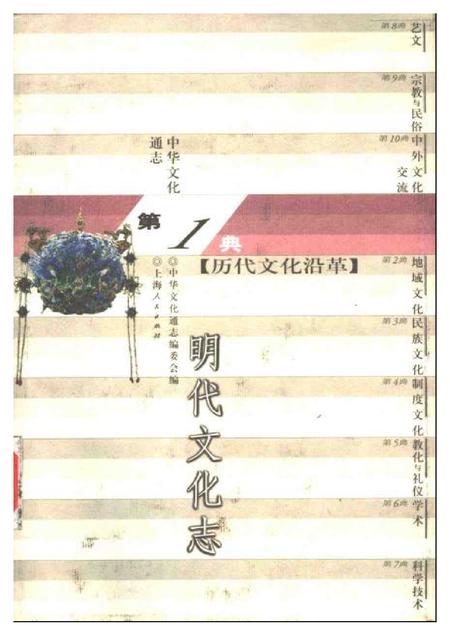 第8典
艺文
第9典
宗教与民俗
第10典
中外文化
交流
中华文化
通志
第
1
典
【历代文化沿革】
◎中华文化通志编委会编
◎上海人民出版社
明代文化志
第2典
地域文化
第3典
民族文化
第4典
制度文化
第5典
教化与礼仪
第6典
学术
第7典
科学技术